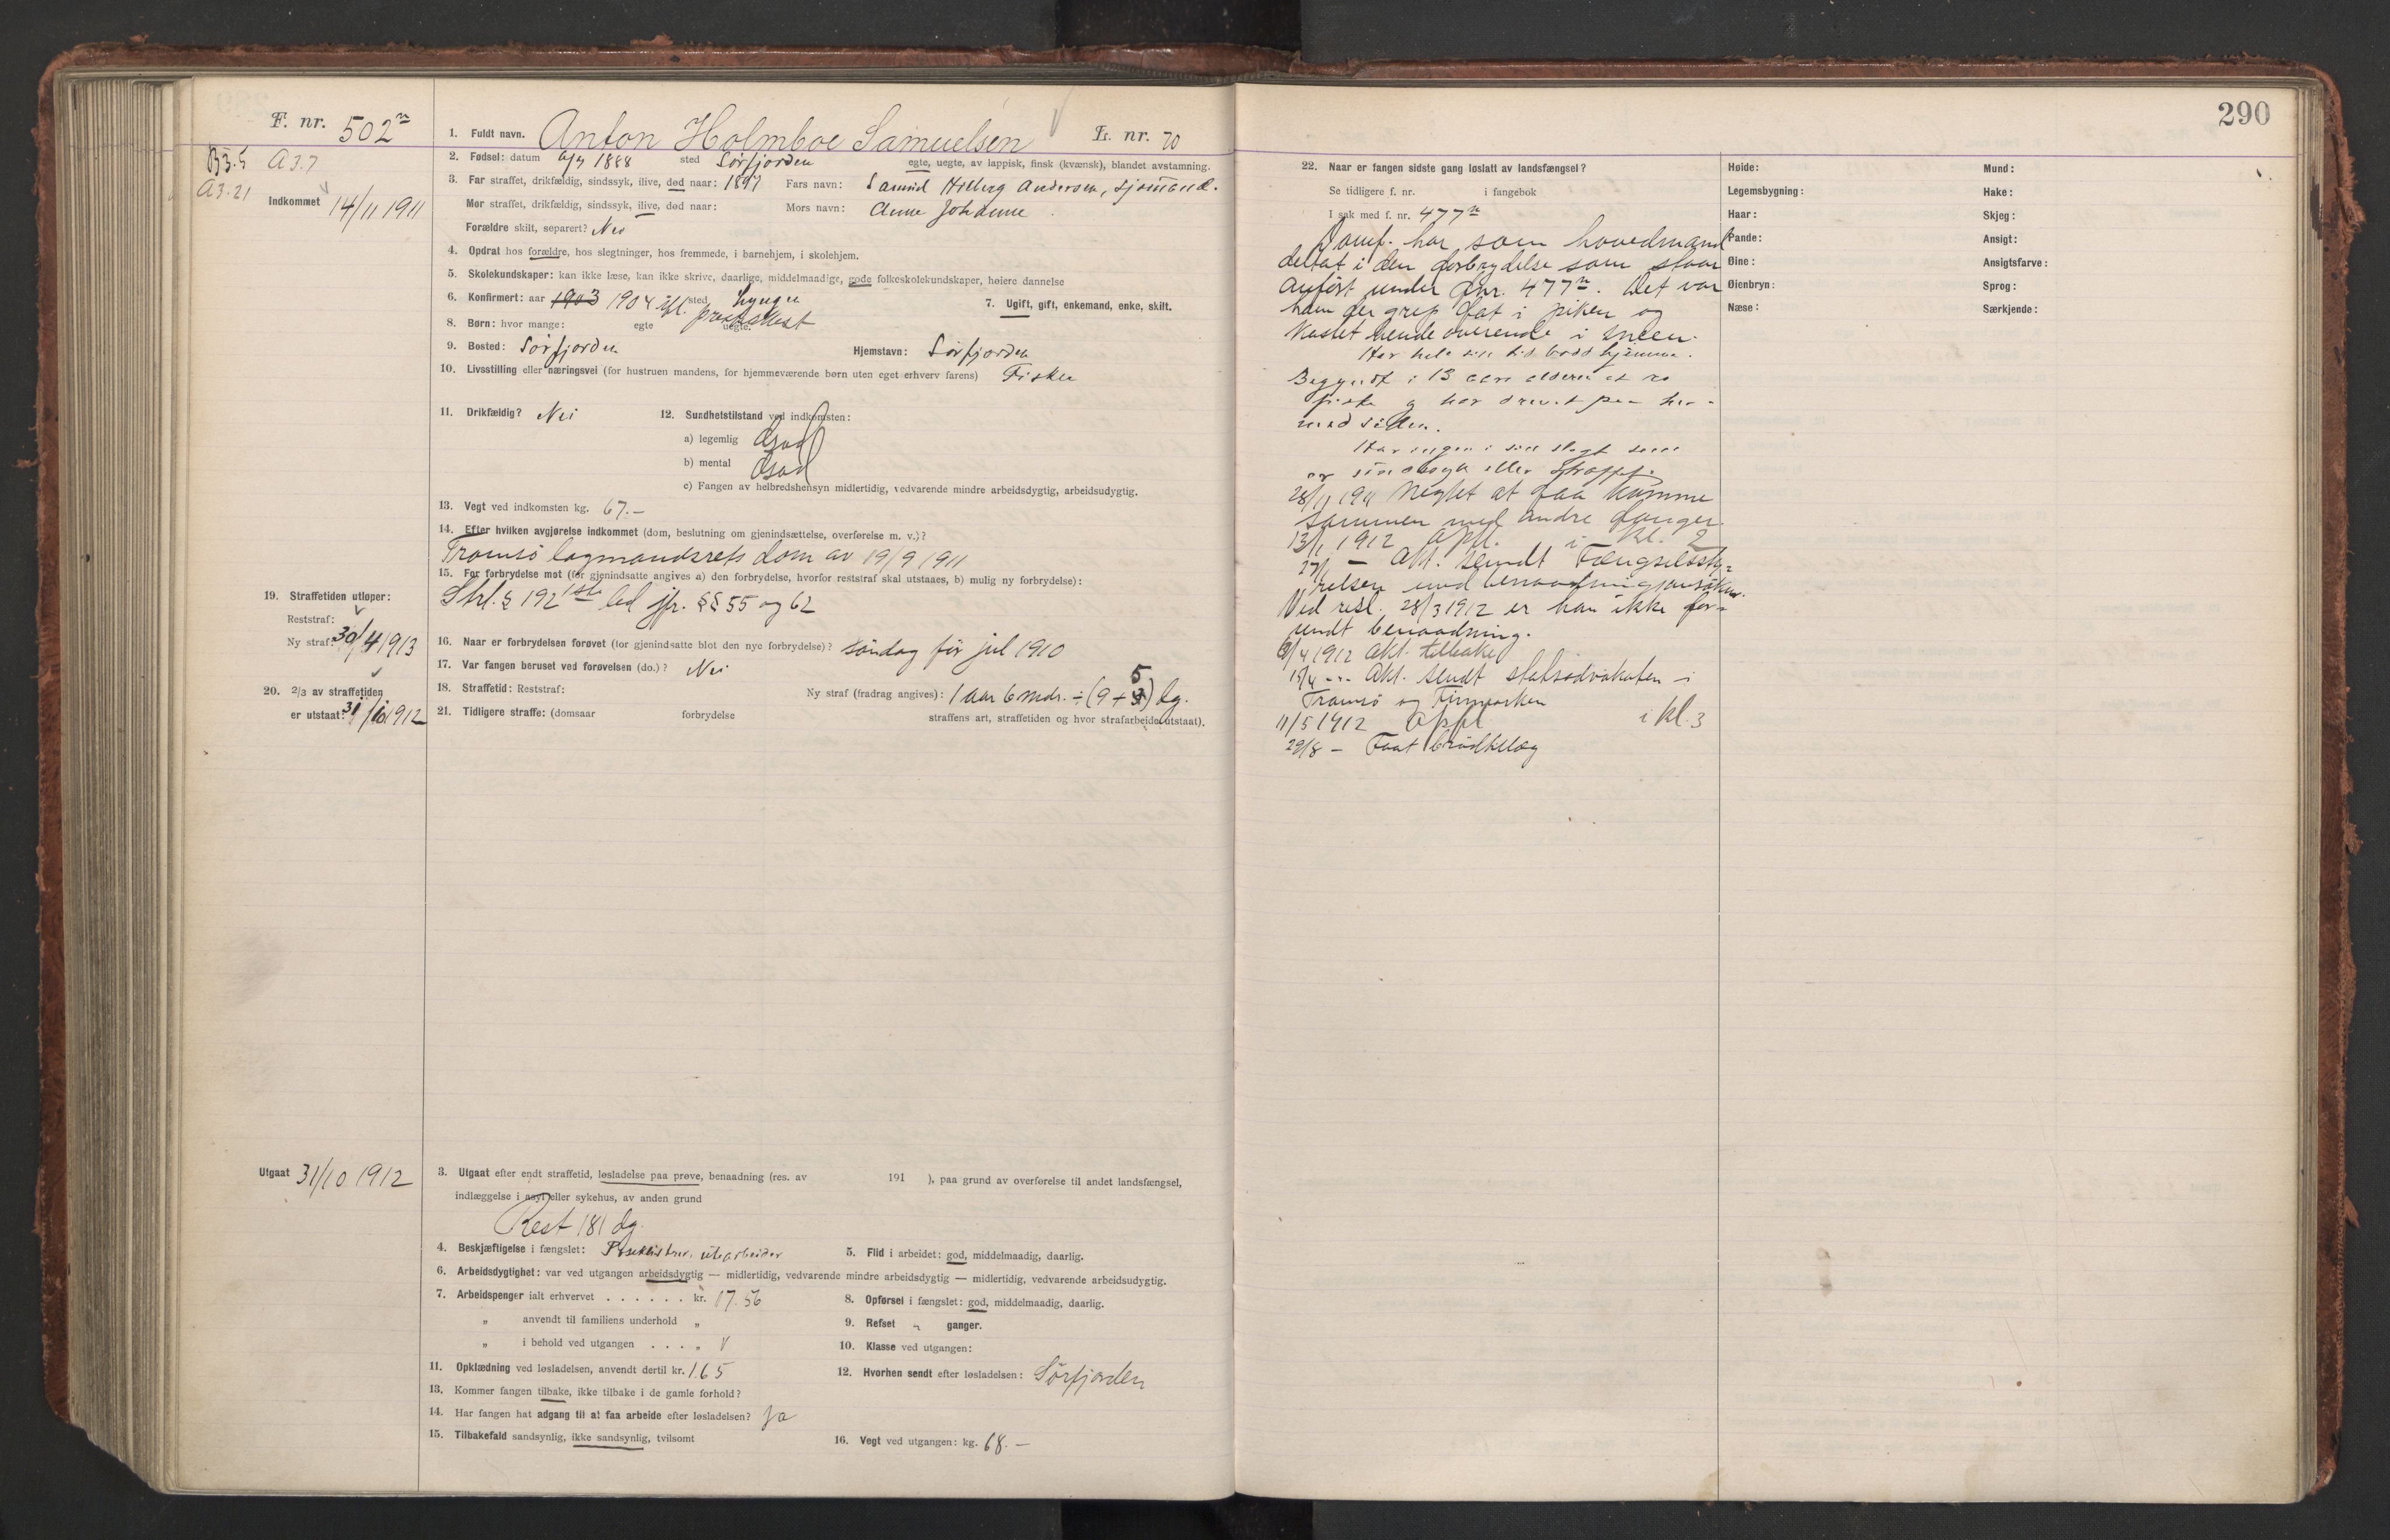 F. nr. 502
B3.5 A 3.7
A3.21
Indkommet 14/11 1911
1. Fuldt navn. Anton Holmboe Samuelsen L. nr. 70
2. Fødsel: datum 1888 sted Sørfjorden egte, uegte, av lappisk, finsk (kvænsk), blandet avstamning.
3. Far straffet, drikfældig, sindssyk, ilive, død naar: 1897 Fars navn: Samuel Andersen, sjømand.
Mor straffet, drikfældig, sindssyk, ilive, død naar: Mors navn: Anne Johanne
Forældre skilt, separert? Nei
4. Opdrat hos forældre, hos slegtninger, hos fremmede, i barnehjem, i skolehjem.
5. Skolekundskaper: kan ikke læse, kan ikke skrive, daarlige, middelmaadige, gode folkeskolekundskaper, høiere dannelse
6. Konfirmert: aar 1903 1904 ifl. sted Lyngen
prestattest
7. Ugift, gift, enkemand, enke, skilt.
8. Børn: hvor mange: egte uegte.
9. Bosted: Sørfjorden Hjemstavn: Sørfjorden
10. Livsstilling eller næringsvei (for hustruen mandens, for hjemmeværende børn uten eget erhverv farens) Fisker
11. Drikfældig? Nei 12. Sundhetstilstand ved indkomsten:
a) legemlig God
b) mental God
c) Fangen av helbredshensyn midlertidig, vedvarende mindre arbeidsdygtig, arbeidsudygtig.
13. Vegt ved indkomsten kg. 67.–
14. Efter hvilken avgjørelse indkommet (dom, beslutning om gjenindsættelse, overførelse m. v.)?
Tromsø lagmandsrets dom av 19/9 1911
15. For forbrydelse mot (for gjenindsatte angives a) den forbrydelse, hvorfor reststraf skal utstaaes, b) mulig ny forbrydelse):
Strl. § 192 1ste led jfr. §§ 55 og 62
19. Straffetiden utløper:
Reststraf:
Ny straf: 30/4 1913
16. Naar er forbrydelsen forøvet (for gjenindsatte blot den nye forbrydelse)? søndag før jul 1910
17. Var fangen beruset ved forøvelsen (do.)? Nei
20. 2/3 av straffetiden
er utstaat: 31/10 1912
18. Straffetid: Reststraf: Ny straf (fradrag angives): 1 aar 6 mdr. ÷ (9 + 5) dg.
21. Tidligere straffe: (domsaar forbrydelse straffens art, straffetiden og hvor strafarbeide utstaat).
Utgaat 31/10 1912
3. Utgaat efter endt straffetid, løsladelse paa prøve, benaadning (res. av 191 ), paa grund av overførelse til andet landsfængsel,
indlæggelse i asyl eller sykehus, av anden grund
Rest 181 dg.
4. Beskjæftigelse i fængslet: utearbeider
5. Flid i arbeidet: god, middelmaadig, daarlig.
6. Arbeidsdygtighet: var ved utgangen arbeidsdygtig — midlertidig, vedvarende mindre arbeidsdygtig — midlertidig, vedvarende arbeidsudygtig.
7. Arbeidspenger ialt erhvervet . . . . . . kr. 17.56
8. Opførsel i fængslet: god, middelmaadig, daarlig.
„ anvendt til familiens underhold „
9. Refset ganger.
„ i behold ved utgangen . . . „
10. Klasse ved utgangen:
11. Opklædning ved løsladelsen, anvendt dertil kr. 1.65
12. Hvorhen sendt efter løsladelsen: Sørfjorden
13. Kommer fangen tilbake, ikke tilbake i de gamle forhold?
14. Har fangen hat adgang til at faa arbeide efter løsladelsen? Ja
15. Tilbakefald sandsynlig, ikke sandsynlig, tvilsomt
16. Vegt ved utgangen: kg. 68.–
290
22. Naar er fangen sidste gang løslatt av landsfængsel?
Se tidligere f. nr. i fangebok
I sak med f. nr. 477
Domf. har som hovedmand
deltat i den forbrydelse som staar
anført under fnr. 477. Det var
ham der grep fat i piken og
kastet hende overende i sneen.
Har hele sin tid bodd hjemme.
Begyndt i 13 aars alderen at ro
fiske og har drevet paa her-
med siden.
Har ingen i sin slegt som
er sindssyk eller straffet.
28/11 1911 Negtet at faa komme
sammen med andre fanger.
13/1 1912 Opfl. i kl. 2
27/1 — Akt. sendt Fængselssty-
relsen med benaadningsansøkn.
Ved resl. 28/3 1912 er han ikke for-
undt benaadning.
/4 1912 Akt. tilbake
15/4 — Akt. sendt statsadvokaten i
Tromsø og Finmarken
11/5 1912 Opfl. i kl. 3
29/8 — Faat
Høide:
Legemsbygning:
Haar:
Pande:
Øine:
Øienbryn:
Næse:
Mund:
Hake:
Skjeg:
Ansigt:
Ansigtsfarve:
Sprog:
Særkjende: